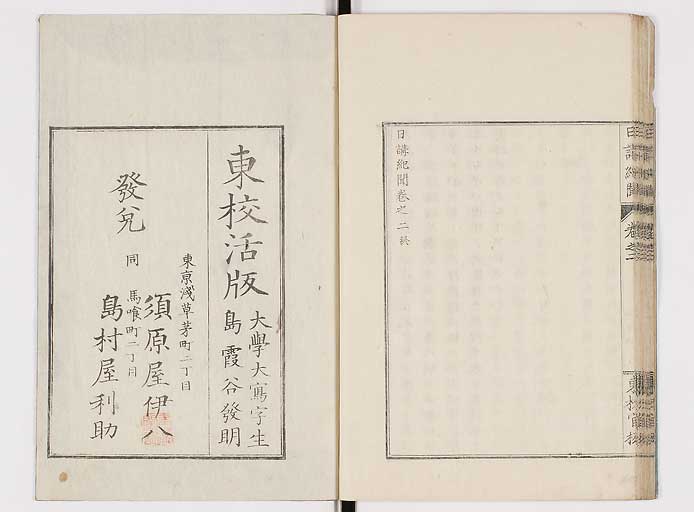 日講紀聞
卷之二
東校官板
日講紀聞卷之二終
東校活版
大學大寫字生
島霞谷發明
東京淺草茅町二丁目
須原屋伊八
發兌
同
馬喰町二丁目
島村屋利助